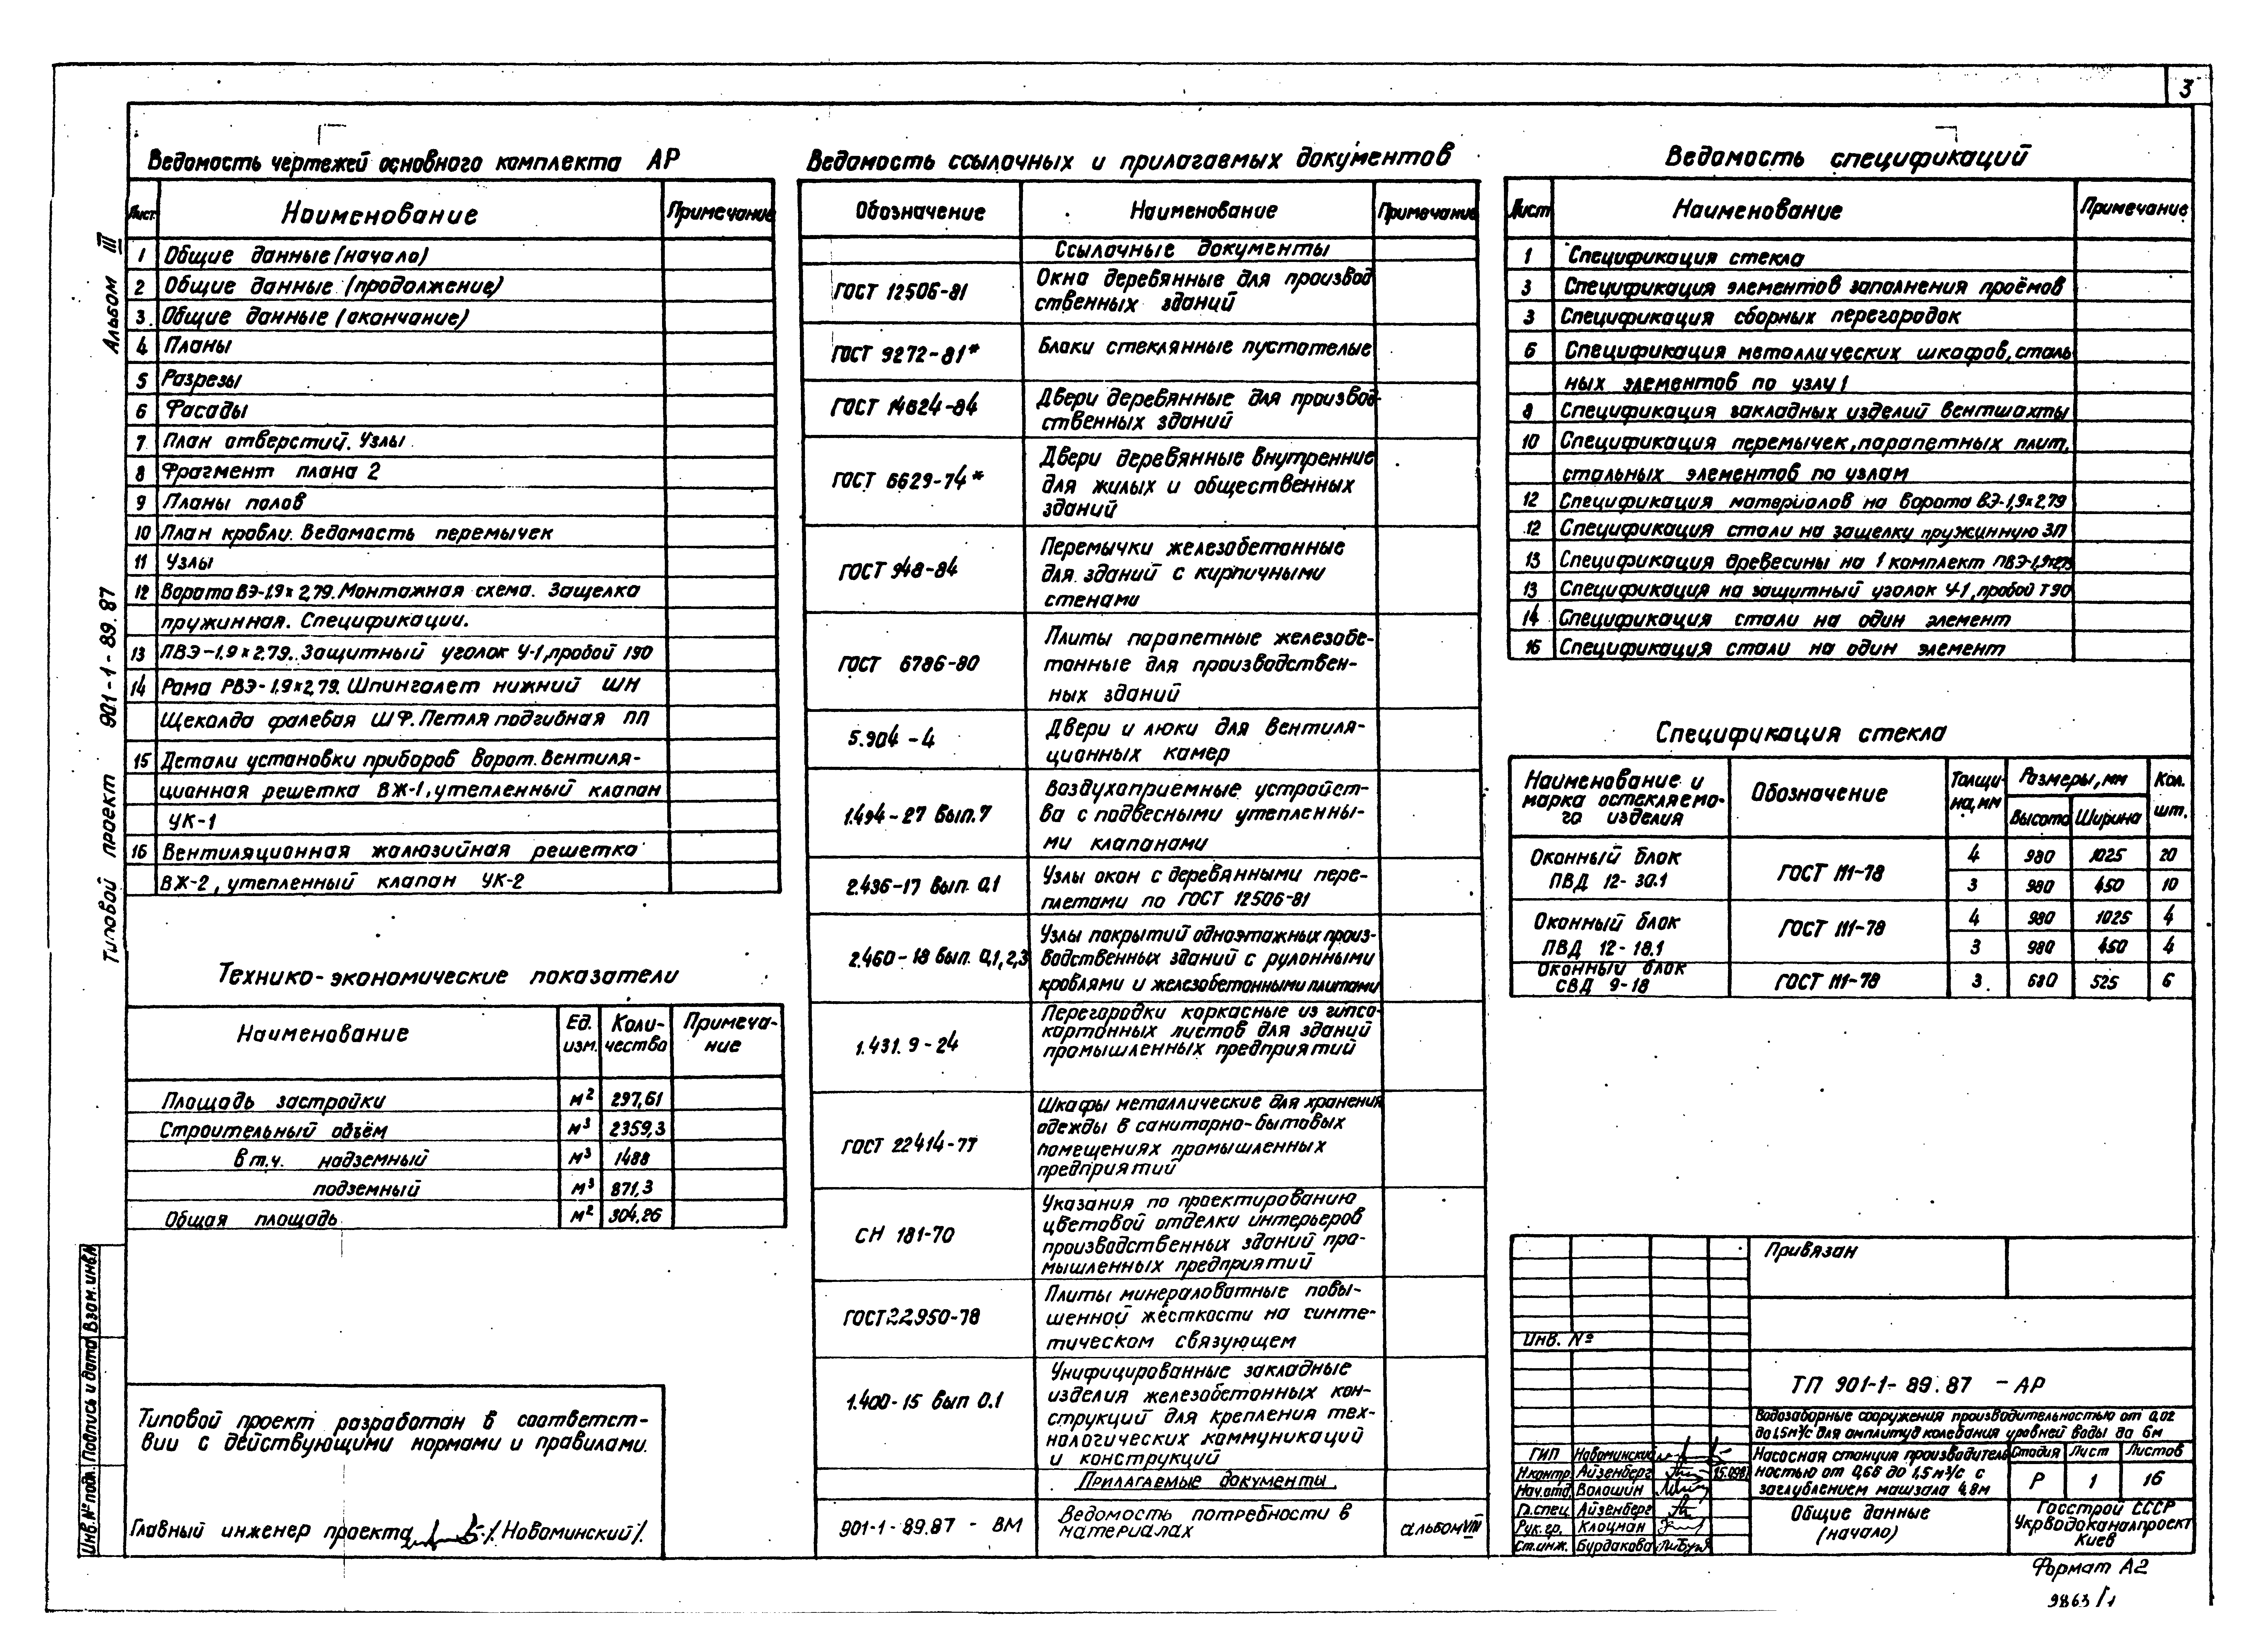 3
Альбом III
Типовой проект 901-1-89.87
Взам.инв.№
Подпись и дата
Инв.№ подл.
Ведомость чертежей основного комплекта АР
Лист Наименование Примечание
1 Общие данные (начало)
2 Общие данные (продолжение)
3 Общие данные (окончание)
4 Планы
5 Разрезы
6 Фасады
7 План отверстий. Узлы
8 Фрагмент плана 2
9 Планы полов
10 План кровли. Ведомость перемычек
11 Узлы
12 Ворота ВЭ-1,9х2,79. Монтажная схема. Защелка
пружинная. Спецификации.
13 ПВЭ-1,9х2,79. Защитный уголок У-1, пробой
14 Рама РВЭ-1,9х2,79. Шпингалет нижний ШН
Щеколда фалевая ШФ. Петля подгибная ПП
15 Детали установки приборов ворот. Вентиля-
ционная решетка ВЖ-1, утепленный клапан
УК-1
16 Вентиляционная жалюзийная решетка
ВЖ-2, утепленный клапан УК-2
Технико-экономические показатели
Наименование Ед. изм. Коли-чество Примеча-ние
Площадь застройки м² 297,61
Строительный объём м³ 2359,3
в т.ч. надземный м³ 1488
подземный м³ 871,3
Общая площадь м² 304,26
Типовой проект разработан в соответст-
вии с действующими нормами и правилами.
Главный инженер проекта /Новоминский/.
Ведомость ссылочных и прилагаемых документов
Обозначение Наименование Примечание
Ссылочные документы
ГОСТ 12506-81 Окна деревянные для производ
ственных зданий
ГОСТ 9272-81* Блоки стеклянные пустотелые
ГОСТ 14624-84 Двери деревянные для производ-
ственных зданий
ГОСТ 6629-74* Двери деревянные внутренние
для жилых и общественных
зданий
ГОСТ 948-84 Перемычки железобетонные
для зданий с кирпичными
стенами
ГОСТ 6786-80 Плиты парапетные железобе-
тонные для производствен-
ных зданий
5.904-4 Двери и люки для вентиля-
ционных камер
1.494-27 вып.7 Воздухоприемные устройст-
ва с подвесными утепленны-
ми клапанами
2.436-17 вып. 0,1 Узлы окон с деревянными пере-
плетами по ГОСТ 12506-81
2.460-18 вып. 0,1,2,3 Узлы покрытий одноэтажных произ-
водственных зданий с рулонными
кровлями и железобетонными плитами
1.431.9-24 Перегородки каркасные из гипсо-
картонных листов для зданий
промышленных предприятий
ГОСТ 22414-77 Шкафы металлические для хранения
одежды в санитарно-бытовых
помещениях промышленных
предприятий
СН 181-70 Указания по проектированию
цветовой отделки интерьеров
производственных зданий про-
мышленных предприятий
ГОСТ 22950-78 Плиты минераловатные повы-
шенной жёсткости на синте-
тическом связующем
1.400-15 вып 0.1 Унифицированные закладные
изделия железобетонных кон-
струкций для крепления тех-
нологических коммуникаций
и конструкций
Прилагаемые документы
901-1-89.87-ВМ Ведомость потребности в
материалах альбом VIII
Ведомость спецификаций
Лист Наименование Примечание
1 Спецификация стекла
3 Спецификация элементов заполнения проёмов
3 Спецификация сборных перегородок
6 Спецификация металлических шкафов, сталь
ных элементов по узлу 1
8 Спецификация закладных изделий вентшахты
10 Спецификация перемычек, парапетных плит,
стальных элементов по узлам
12 Спецификация материалов на ворота ВЭ-1,9х2,79
12 Спецификация стали на защелку пружинную ЗП
13 Спецификация древесины на 1 комплект ПВЭ-1,9х2,79
13 Спецификация на защитный уголок У-1, пробой Т90
14 Спецификация стали на один элемент
16 Спецификация стали на один элемент
Спецификация стекла
Наименование и марка остекляемо-го изделия Обозначение Толщи-на, мм Размеры, мм Кол. шт.
Высота Ширина
Оконный блок ПВД 12-30.1 ГОСТ 111-78 4 980 1025 20
3 980 450 10
Оконный блок ПВД 12-18.1 ГОСТ 111-78 4 980 1025 4
3 980 450 4
Оконный блок СВД 9-18 ГОСТ 111-78 3 680 525 6
Привязан
Инв. №
ТП 901-1-89.87 -АР
Водозаборные сооружения производительностью от 0,02
до 1,5м³/с для амплитуд колебания уровней воды до 6м
ГИП Новоминский
Н.контр. Айзенберг
Нач.отд. Волошин
Гл.спец. Айзенберг
Рук.гр. Клоцман
Ст.инж. Бурдакова
Насосная станция производитель
ностью от 0,66 до 1,5м³/с с
заглублением машзала 4,8м
Стадия Лист Листов
Р 1 16
Общие данные
(начало)
Госстрой СССР
Укрводоканалпроект
Киев
Формат А2
9863/1